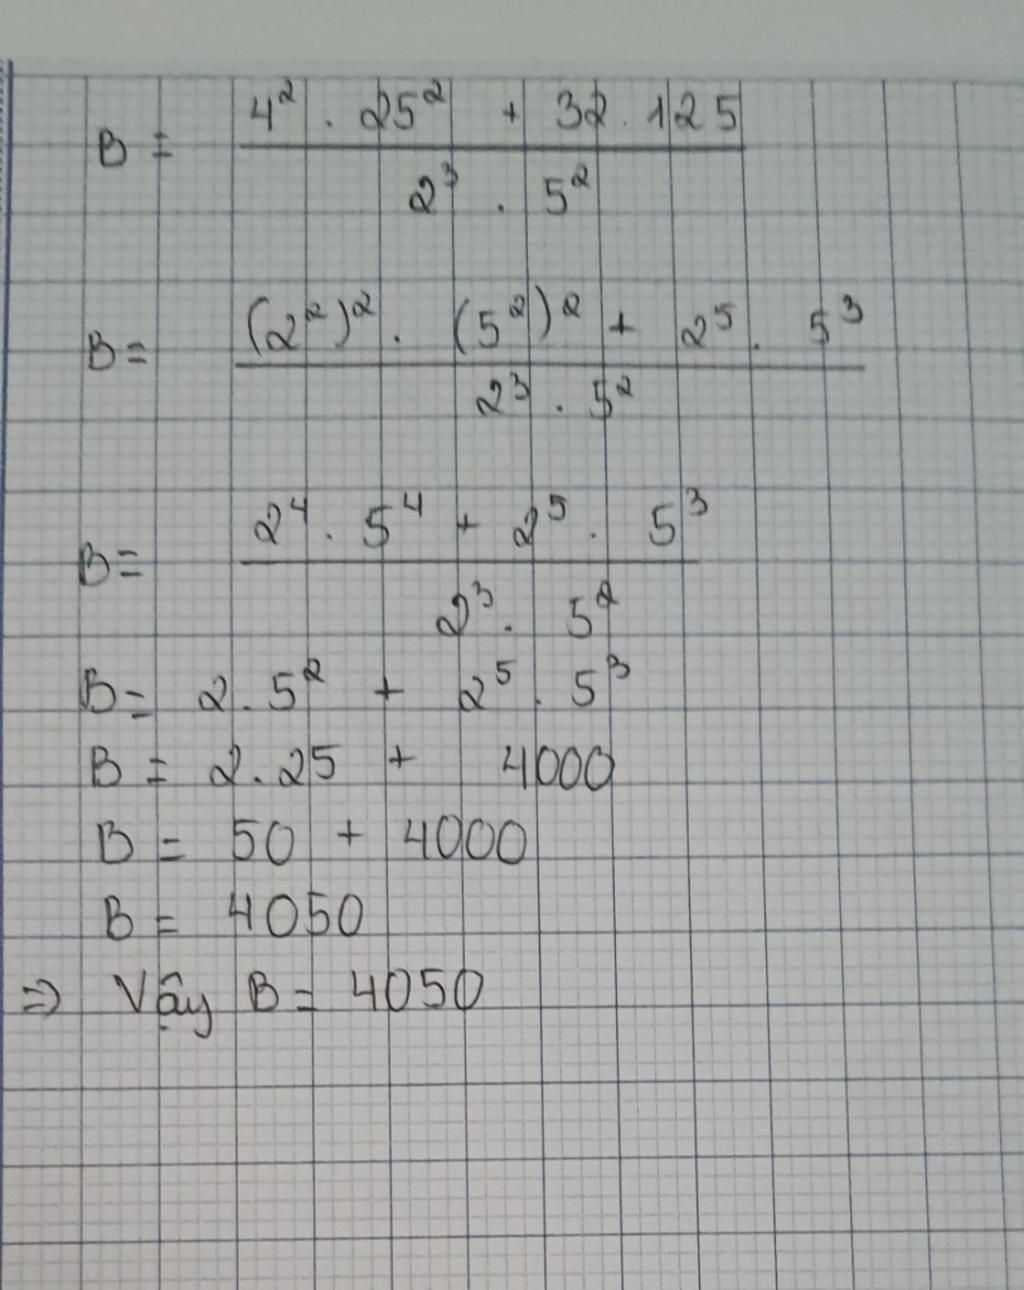 B = 4² . 25² + 32 . 125
2³ . 5²
B = (2²)² . (5²)² + 2⁵ . 5³
2³ . 5²
B = 2⁴ . 5⁴ + 2⁵ . 5³
2³ . 5²
B = 2 . 5² + 2⁵ . 5³
B = 2 . 25 + 4000
B = 50 + 4000
B = 4050
⇒ Vậy B = 4050